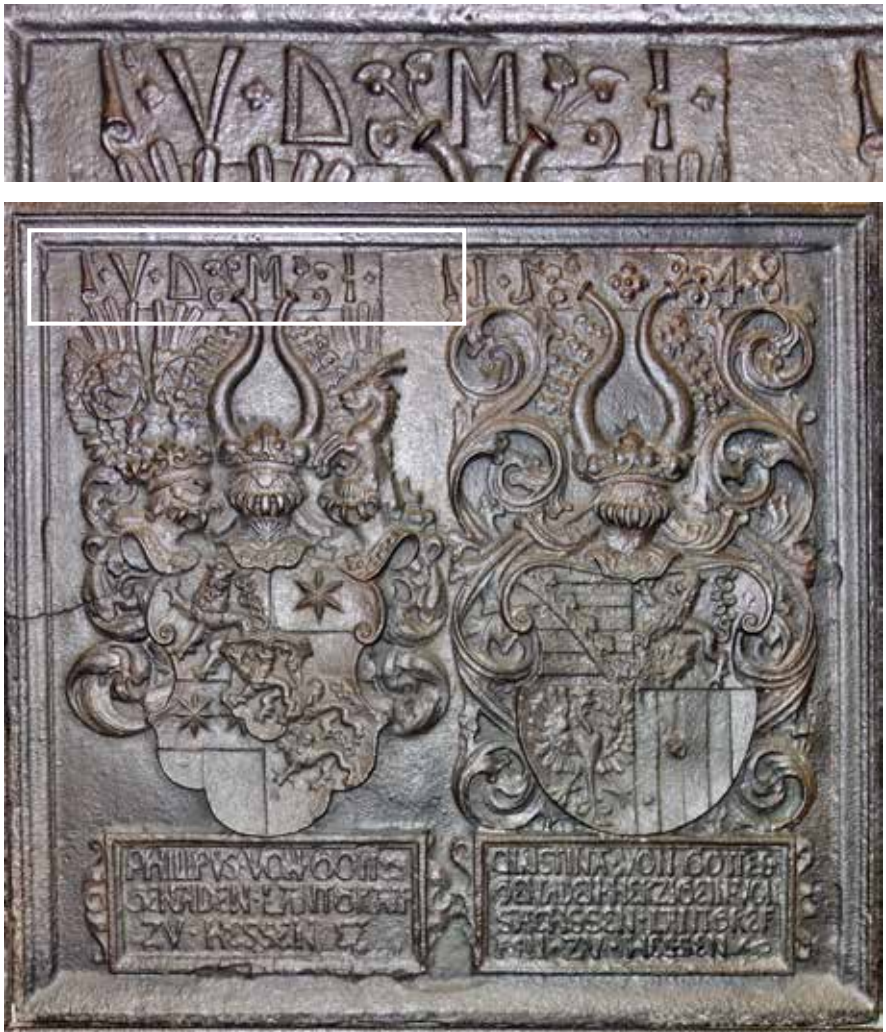 V · D · M · I ·
1 5 4 8
PHILIPVS · VON GOTTES
GENADEN · LANTGRAF
ZV · HESSEN
CRISTINA · VON GOTTES
GENADEN HERZIGEN VON
LANTGREF
ZV · HESSEN